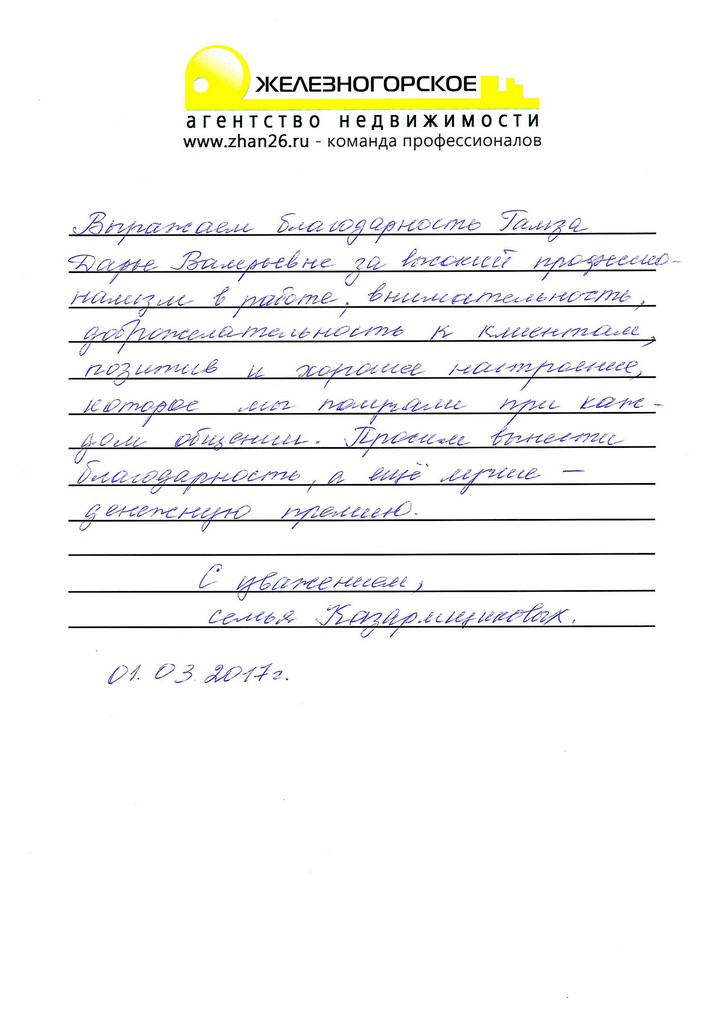 ЖЕЛЕЗНОГОРСКОЕ
агентство недвижимости
www.zhan26.ru - команда профессионалов
Выражаем благодарность Гамза
Дарье Валерьевне за высокий професcио-
нализм в работе, внимательность,
доброжелательность к клиентам,
позитив и хорошее настроение,
которое мы получали при каж-
дом общении. Просим вынести
благодарность, а ещё лучше —
денежную премию.
С уважением,
семья Казармщиковых.
01.03.2017г.